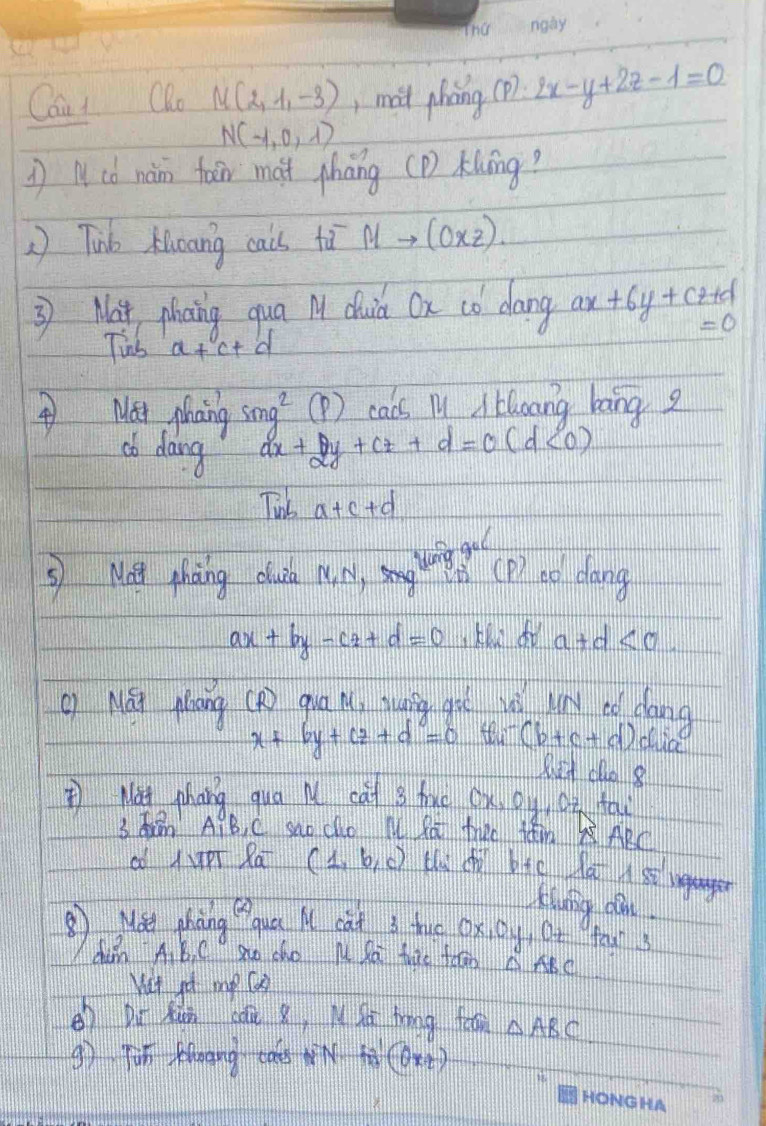 Thứ ngày
Câu 1 Cho M(2,1,-3), mặt phẳng (P): 2x-y+2z-1=0
N(-1,0,1)
1) M có nằm trên mặt phẳng (P) không?
2) Tính khoảng cách từ M → (Oxz).
3) Mặt phẳng qua M chứa Ox có dạng ax+6y+cz+d
=0
Tính a+c+d
4) Mặt phẳng song² (P) cách M 1 khoảng bằng 2
có dạng ax+2y+cz+d=0 (d<0)
Tính a+c+d
vuông góc
5) Mặt phẳng chứa M,N, với (P) có dạng
ax+by-cz+d=0, khi đó a+d<0.
6) Mặt phẳng (R) qua M, vuông góc với MN có dạng
x+by+cz+d=0 thì (b+c+d) chia
hết cho 8
7) Mặt phẳng qua M cắt 3 trục Ox,Oy,Oz tại
3 điểm A,B,C sao cho M là trực tâm Δ ABC
có 1 VTPT là (1,b,c) khi đó b+c là 1 số nguyên
không âm.
8) Mặt phẳng (α) qua M cắt 3 trục Ox,Oy,Oz tại 3
điểm A,B,C sao cho M là trực tâm Δ ABC
Viết pt mp (α)
8') Dữ kiện câu 8, M là trọng tâm Δ ABC
9) Tính khoảng cách từ N tới (Oxz)
HONG HA